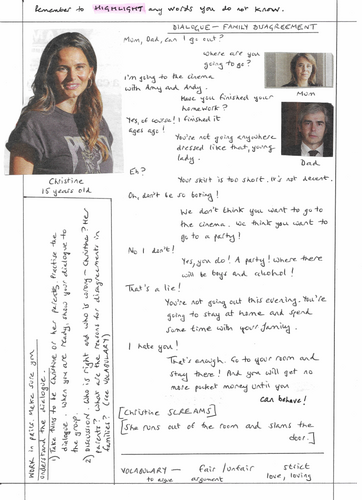 Remember to HIGHLIGHT any words you do not know.
DIALOGUE - FAMILY DISAGREEMENT
Mum, Dad, can I go out?
Where are you
going to go?
I'm going to the cinema
with Amy and Andy.
Have you finished your
homework?
Yes, of course! I finished it
ages ago!
You're not going anywhere
dressed like that, young
lady.
Eh?
Your skirt is too short. It's not decent.
Oh, don't be so boring!
We don't think you want to go to
the cinema. We think you want to
go to a party!
No I don't!
Yes, you do! A party! Where there
will be boys and alcohol!
That's a lie!
You're not going out this evening. You're
going to stay at home and spend
some time with your family.
I hate you!
That's enough. Go to your room and
stay there! And you will get no
more pocket money until you
can behave!
[Christine SCREAMS]
[She runs out of the room and slams the
door.]
Mum
Dad
Christine
15 years old
WORK in pairs. Make sure you
understand the dialogue.
1) Take turns to be Christine or her parents. Practise the
dialogue. When you are ready, show your dialogue to
the group.
2) DISCUSSION. Who is right and who is wrong - Christine? Her
parents? What are the reasons for disagreements in
families? (see VOCABULARY)
VOCABULARY - fair/unfair strict
to argue argument love, loving